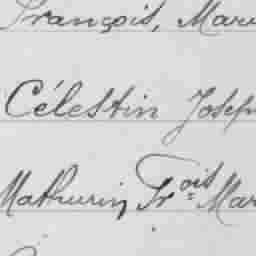 François, Mari
Célestin Joseph
Mathurin, Frois Mar